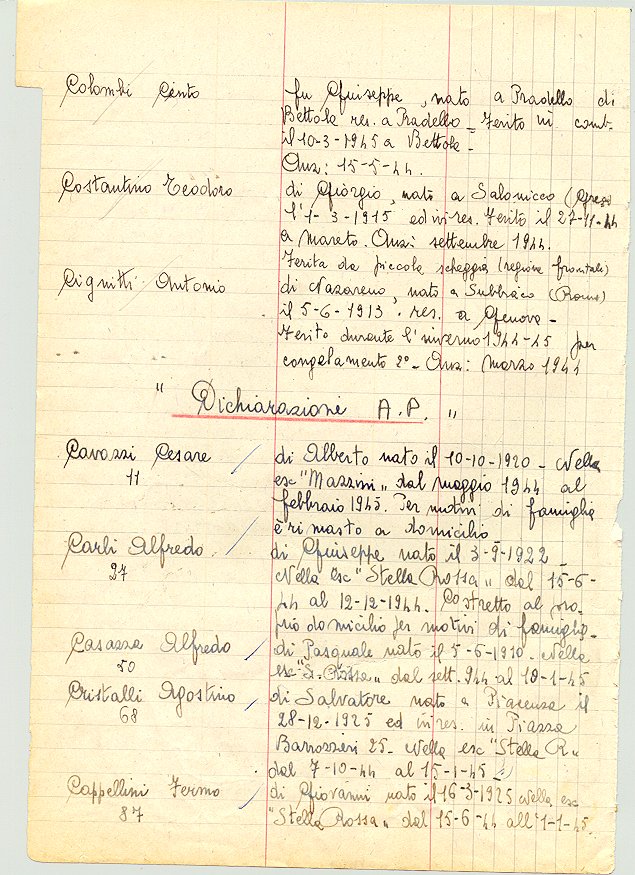 Colombi Cinto fu Giuseppe, nato a Pradello di
Bettola res. a Pradello = Ferito in comb.
il 10-3-1945 a Bettola -
Anz: 15-5-44.
Costantino Teodoro di Giorgio, nato a Salonicco (Grecia
l'1-3-1915 ed ivi res. Ferito il 27-11-44
a Mareto. Anz: settembre 1944.
Ferita da piccola scheggia (regione frontali)
Cignitti Antonio di Nazareno, nato a Subbiaco (Roma)
il 5-6-1913. res. a Genova -
Ferito durante l'inverno 1944-45 per
congelamento 2° - Anz: Marzo 1944
" Dichiarazione A.P. "
Cavazzi Cesare di Alberto nato il 10-10-1920 - Nella
11 esc "Mazzini" dal maggio 1944 al
febbraio 1945. Per motivi di famiglia
è rimasto a domicilio
Carli Alfredo di Giuseppe nato il 3-9-1922 -
27 Nella esc "Stella Rossa" dal 15-6-
44 al 12-12-1944. Costretto al pro-
prio domicilio per motivi di famiglia -
Casazza Alfredo di Pasquale nato il 5-6-1910. Nella
50 esc "S. Rossa" dal sett. 944 al 10-1-45
Cristalli Agostino di Salvatore nato a Piacenza il
68 28-12-1925 ed ivi res. in Piazza
Barozzieri 25 - Nella esc "Stella R"
dal 7-10-44 al 15-1-45
Cappellini Fermo di Giovanni nato il 16-3-1925 Nella esc
87 "Stella Rossa" dal 15-6-44 all'1-1-45.